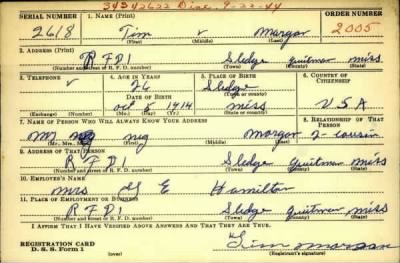 34342622 Disc. 9-22-44
SERIAL NUMBER 1. NAME (Print) ORDER NUMBER
2618 Tim v Morgan 2005
(First) (Middle) (Last)
2. ADDRESS (Print)
RFD1 Sledge Quitman Miss
(Number and street or R. F. D. number) (Town) (County) (State)
3. TELEPHONE 4. AGE IN YEARS 5. PLACE OF BIRTH 6. COUNTRY OF CITIZENSHIP
v 26 Sledge
DATE OF BIRTH (Town or county)
Oct 5 1914 Miss USA
(Exchange) (Number) (Mo.) (Day) (Yr.) (State or country)
7. NAME OF PERSON WHO WILL ALWAYS KNOW YOUR ADDRESS 8. RELATIONSHIP OF THAT PERSON
Morgan 2-cousin
(Mr., Mrs., Miss) (First) (Middle) (Last)
9. ADDRESS OF THAT PERSON
RFD1 Sledge Quitman Miss
(Number and street or R. F. D. number) (Town) (County) (State)
10. EMPLOYER'S NAME
Mrs G E Hamilton
11. PLACE OF EMPLOYMENT OR BUSINESS
RFD1 Sledge Quitman Miss
(Number and street or R. F. D. number) (Town) (County) (State)
I AFFIRM THAT I HAVE VERIFIED ABOVE ANSWERS AND THAT THEY ARE TRUE.
REGISTRATION CARD Tim Morgan
D. S. S. Form 1 (over) (Registrant's signature)